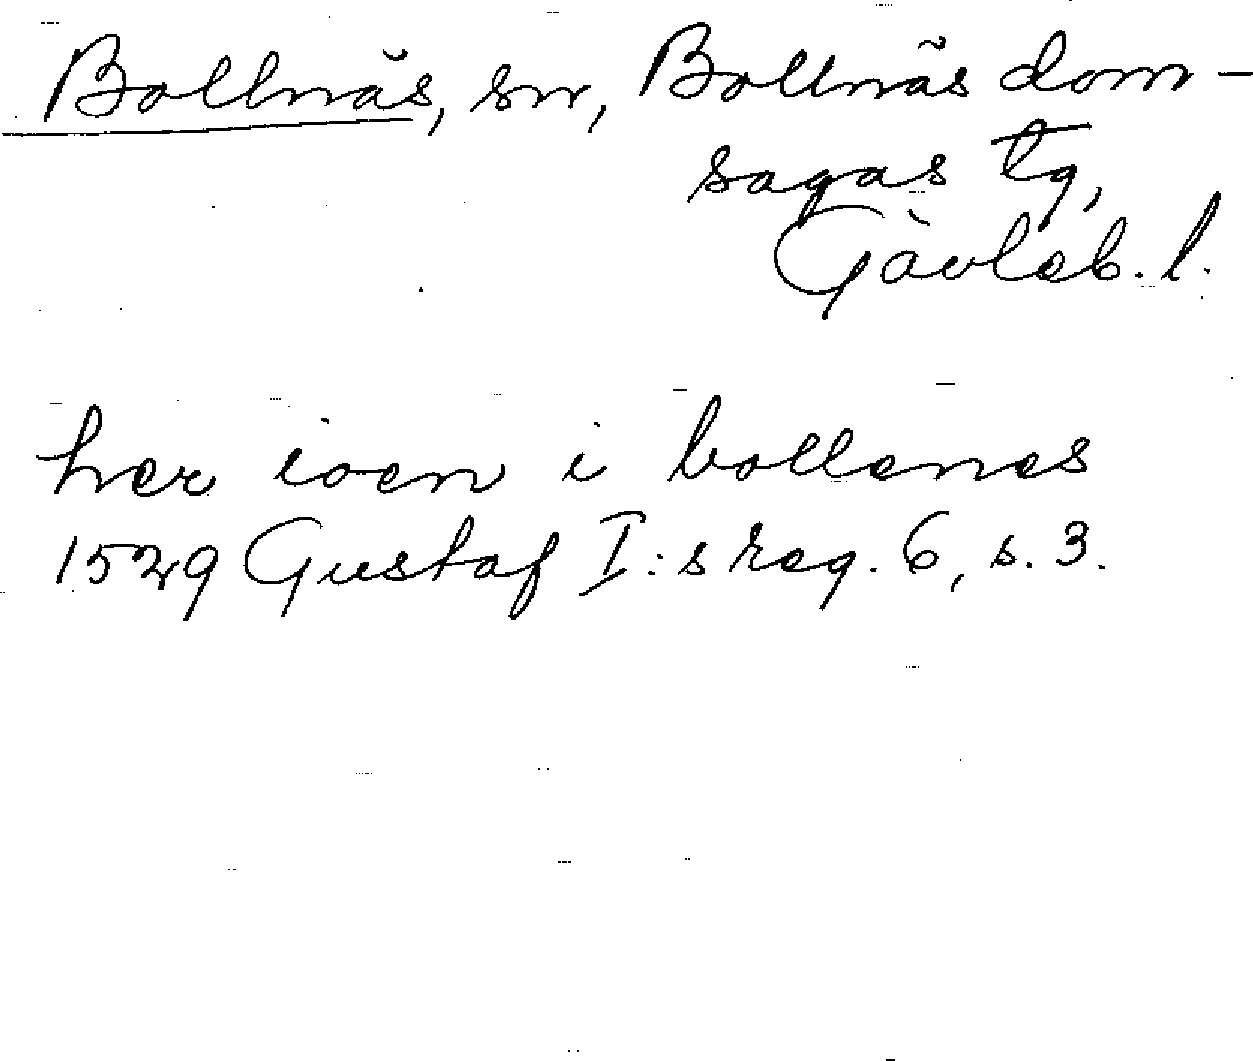 Bollnäs, sn, Bollnäs dom-
sagas tg,
Gävleb. l.
her ioen i bollenes
1529 Gustaf I:s reg. 6, s. 3.